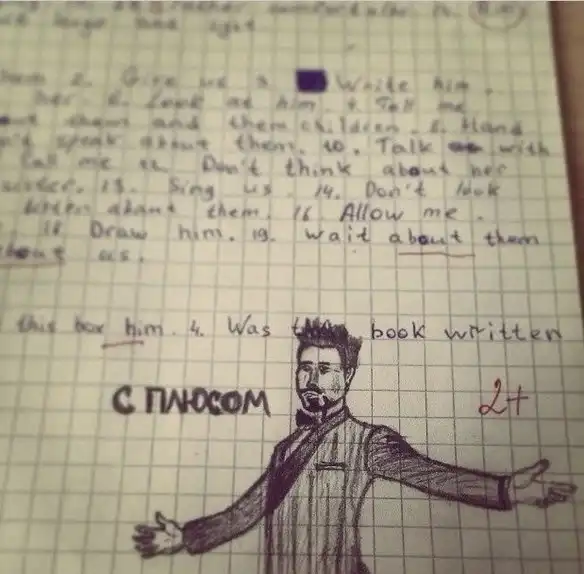 longer and
2. Give us 3. Write him.
her. 6. Look at him. 7. Tell me
them and them children. 8. Hand
speak about them. 10. Talk with
Call me 12. Don't think about her
sister. 13. Sing us. 14. Don't look
about them. 16. Allow me.
18. Draw him. 19. wait about them
about us.
this box him. 4. Was book written
С ПЛЮСОМ
2+